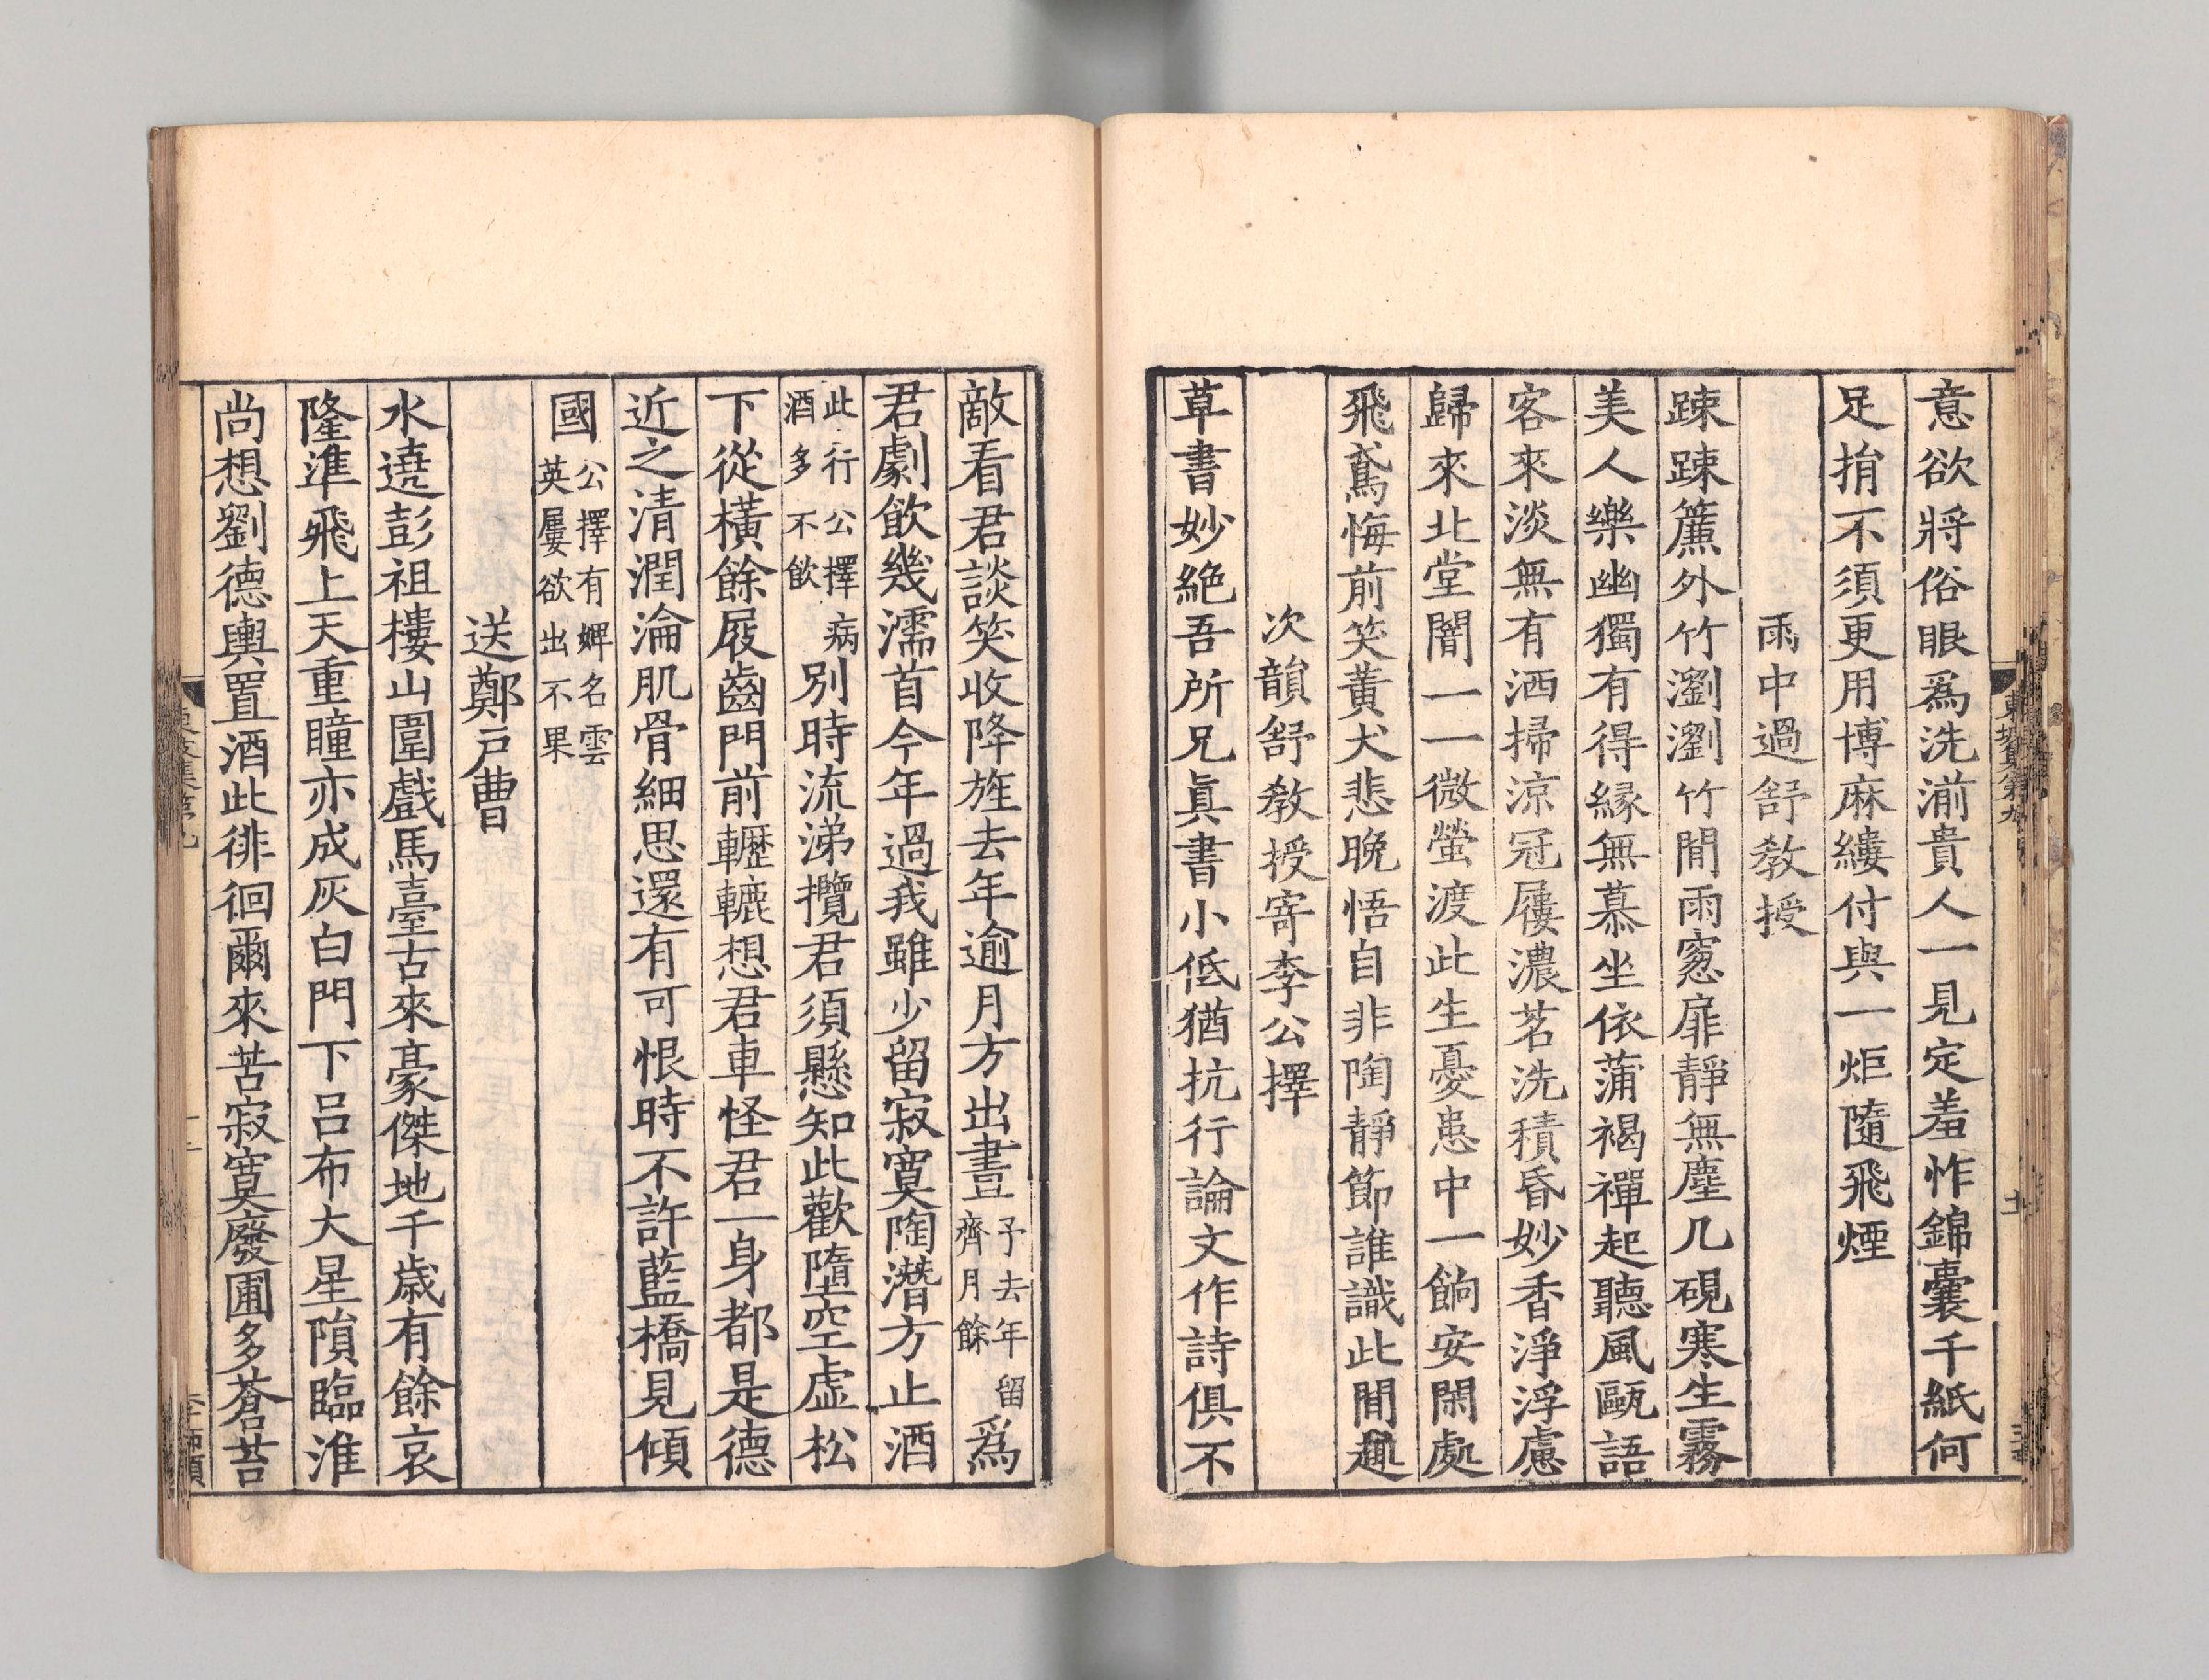 意欲將俗眼爲洗湔貴人一見定羞怍錦囊千紙何
足捎不須更用博麻縷付與一炬隨飛煙
雨中過舒敎授
踈踈簾外竹瀏瀏竹間雨窓扉靜無塵几硯寒生霧
美人樂幽獨有得緣無慕坐依蒲褐禪起聽風甌語
客來淡無有洒掃凉冠屨濃茗洗積昏妙香淨浮慮
歸來北堂闇一一微螢渡此生憂患中一餉安閑處
飛鳶悔前笑黄犬悲晚悟自非陶靜節誰識此間趣
次韻舒敎授寄李公擇
草書妙絶吾所兄眞書小低猶抗行論文作詩俱不
敵看君談笑收降旌去年逾月方出晝予去年留齊月餘爲
君劇飮幾濡首今年過我雖少留寂寞陶潛方止酒
此行公擇病酒多不飮別時流涕攬君須懸知此歡墮空虛松
下從橫餘屐齒門前轣轆想君車怪君一身都是德
近之清潤淪肌骨細思還有可恨時不許藍橋見傾
國公擇有婢名雲英屢欲出不果
送鄭戸曹
水遶彭祖樓山圍戲馬臺古來豪傑地千歳有餘哀
隆準飛上天重瞳亦成灰白門下呂布大星隕臨淮
尚想劉德輿置酒此徘徊爾來苦寂寞廢圃多蒼苔